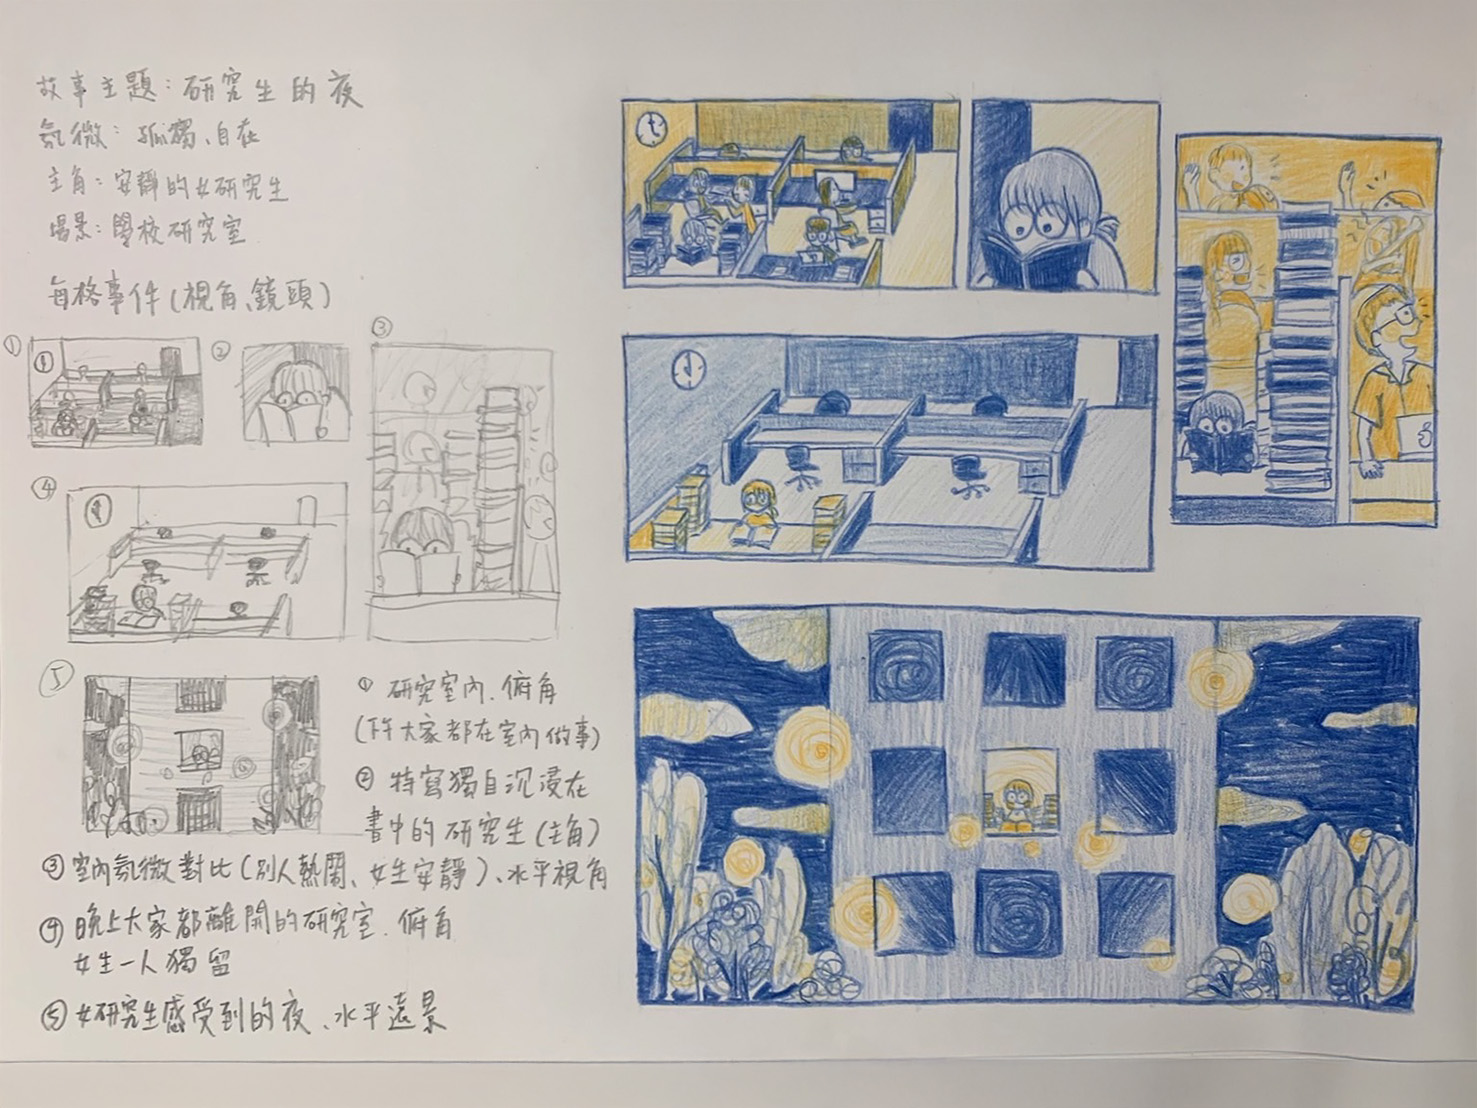 故事主題：研究生的夜
氛微：孤獨、自在
主角：安靜的女研究生
場景：學校研究室
每格事件(視角、鏡頭)
①
②
③
④
⑤
① 研究室內．俯角
(下午大家都在室內做事)
② 特寫獨自沉浸在
書中的研究生(主角)
③ 室內氛微對比(別人熱鬧、女生安靜)、水平視角
④ 晚上大家都離開的研究室．俯角
女生一人獨留
⑤ 女研究生感受到的夜、水平遠景